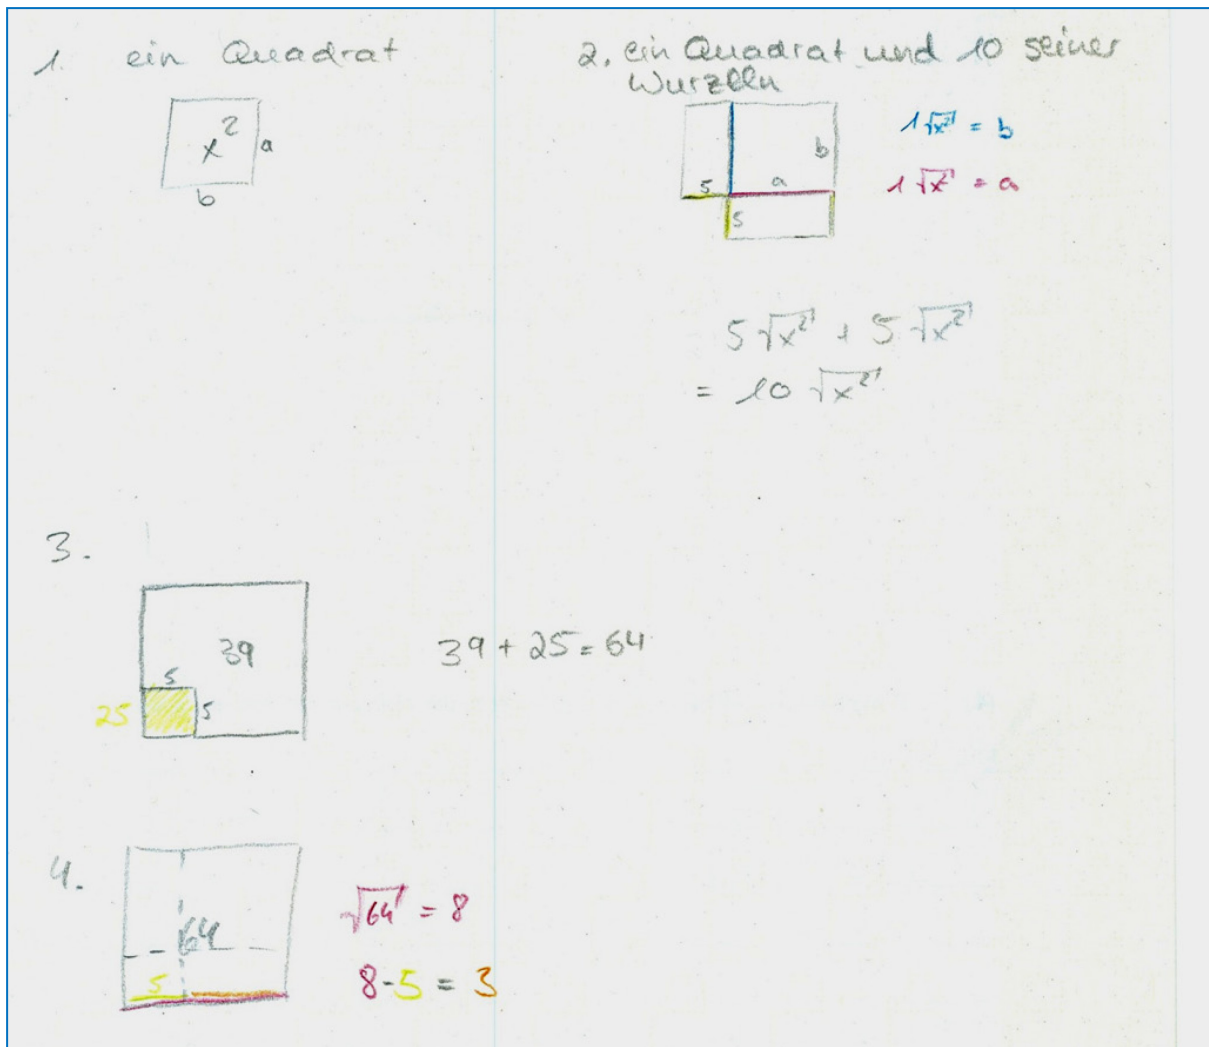 1. ein Quadrat
x²
a
b
2. ein Quadrat und 10 seiner
Wurzeln
b
5
a
5
1√x² = b
1√x² = a
5√x² + 5√x²
= 10√x²
3.
39
5
25
5
39 + 25 = 64
4.
64
5
√64 = 8
8-5 = 3